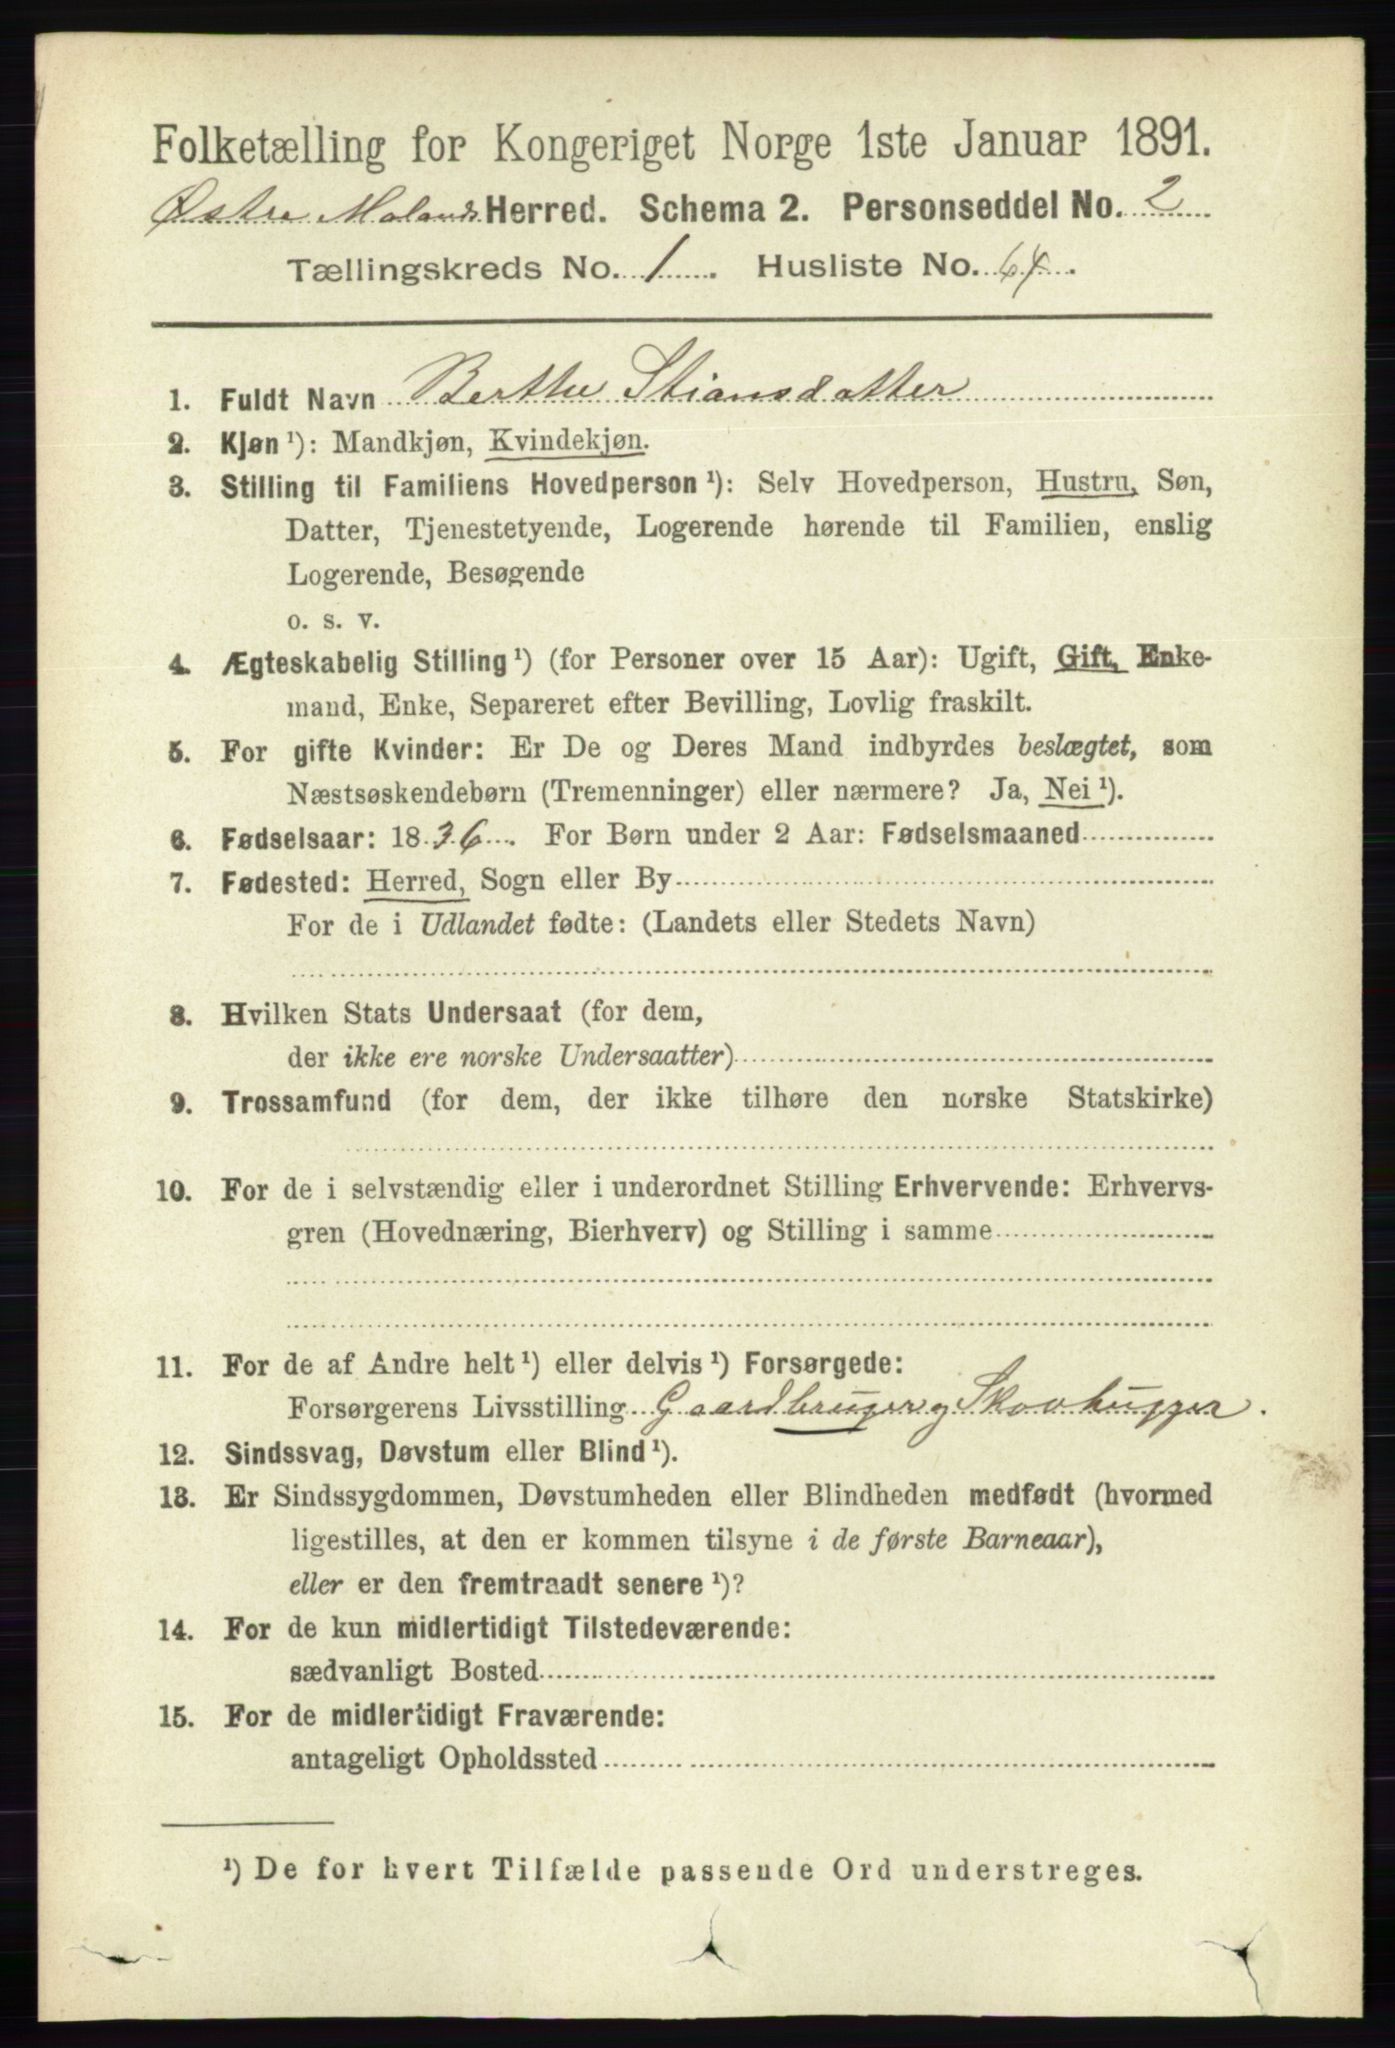 Folketælling for Kongeriget Norge 1ste Januar 1891.
Østre Molands Herred. Schema 2. Personseddel No. 2
Tællingskreds No. 1. Husliste No. 64.
1. Fuldt Navn Berthe Stiansdatter
2. Kjøn ¹): Mandkjøn, Kvindekjøn.
3. Stilling til Familiens Hovedperson ¹): Selv Hovedperson, Hustru, Søn,
Datter, Tjenestetyende, Logerende hørende til Familien, enslig
Logerende, Besøgende
o. s. v.
4. Ægteskabelig Stilling ¹) (for Personer over 15 Aar): Ugift, Gift, Enke-
mand, Enke, Separeret efter Bevilling, Lovlig fraskilt.
5. For gifte Kvinder: Er De og Deres Mand indbyrdes beslægtet, som
Næstsøskendebørn (Tremenninger) eller nærmere? Ja, Nei ¹).
6. Fødselsaar: 1836. For Børn under 2 Aar: Fødselsmaaned
7. Fødested: Herred, Sogn eller By
For de i Udlandet fødte: (Landets eller Stedets Navn)
8. Hvilken Stats Undersaat (for dem,
der ikke ere norske Undersaatter)
9. Trossamfund (for dem, der ikke tilhøre den norske Statskirke)
10. For de i selvstændig eller i underordnet Stilling Erhvervende: Erhvervs-
gren (Hovednæring, Bierhverv) og Stilling i samme
11. For de af Andre helt ¹) eller delvis ¹) Forsørgede:
Forsørgerens Livsstilling Gaardbruger og Skovhugger.
12. Sindssvag, Døvstum eller Blind ¹).
13. Er Sindssygdommen, Døvstumheden eller Blindheden medfødt (hvormed
ligestilles, at den er kommen tilsyne i de første Barneaar),
eller er den fremtraadt senere ¹)?
14. For de kun midlertidigt Tilstedeværende:
sædvanligt Bosted
15. For de midlertidigt Fraværende:
antageligt Opholdssted
¹) De for hvert Tilfælde passende Ord understreges.